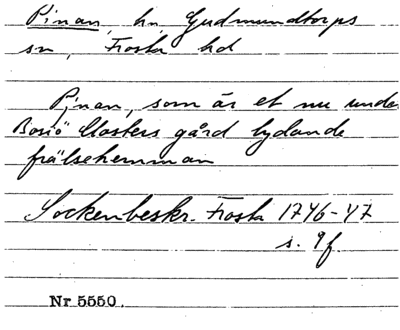 Pinan, hn, Gudmundtorps
sn, Frosta hd
Pinan, som är et nu unde
Bosiö Closters gård lydande
frälsehemman
Sockenbeskr. Frosta 1746-47
s. 9f
Nr 5550.